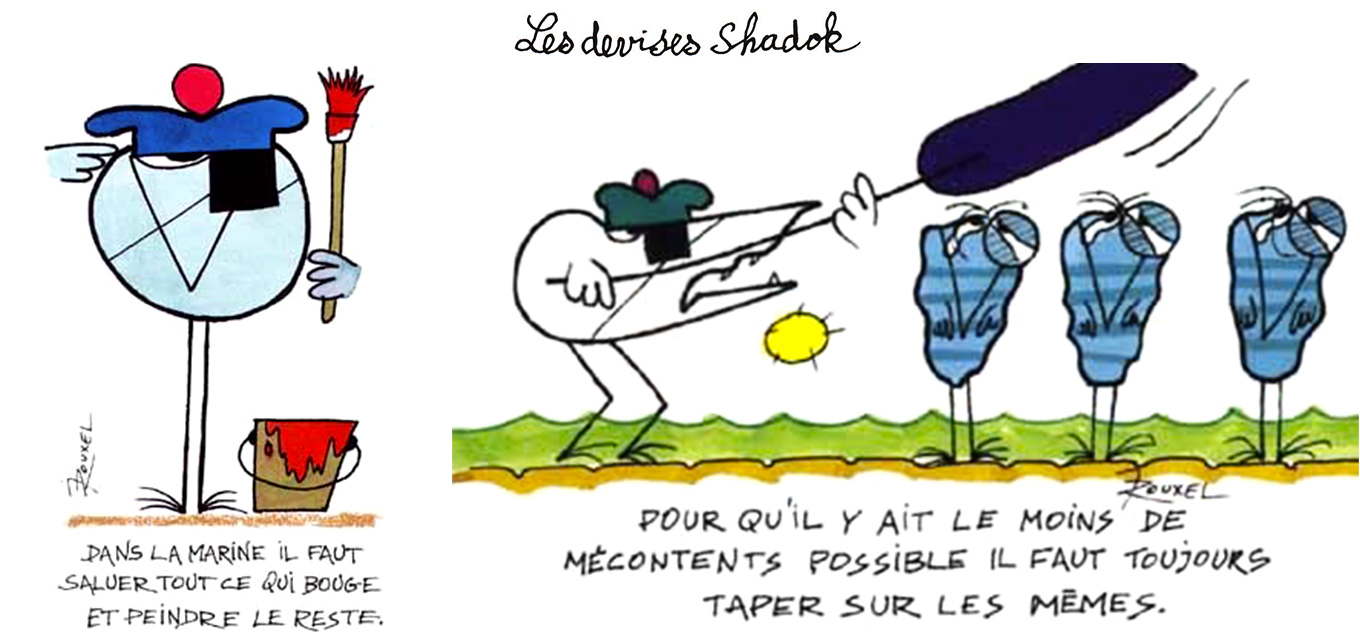 Les devises Shadok
ROUXEL
DANS LA MARINE IL FAUT
SALUER TOUT CE QUI BOUGE
ET PEINDRE LE RESTE.
ROUXEL
POUR QU'IL Y AIT LE MOINS DE
MÉCONTENTS POSSIBLE IL FAUT TOUJOURS
TAPER SUR LES MÊMES.